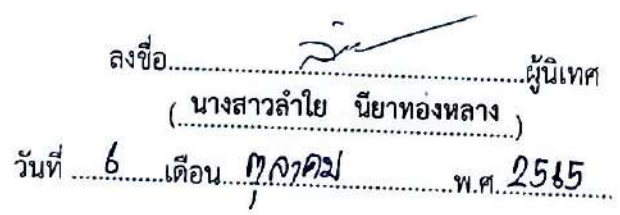 ลงชื่อ..............................ผู้นิเทศ
( นางสาวลำใย นียาทองหลาง )
วันที่ 6 เดือน ตุลาคม พ.ศ. 2565